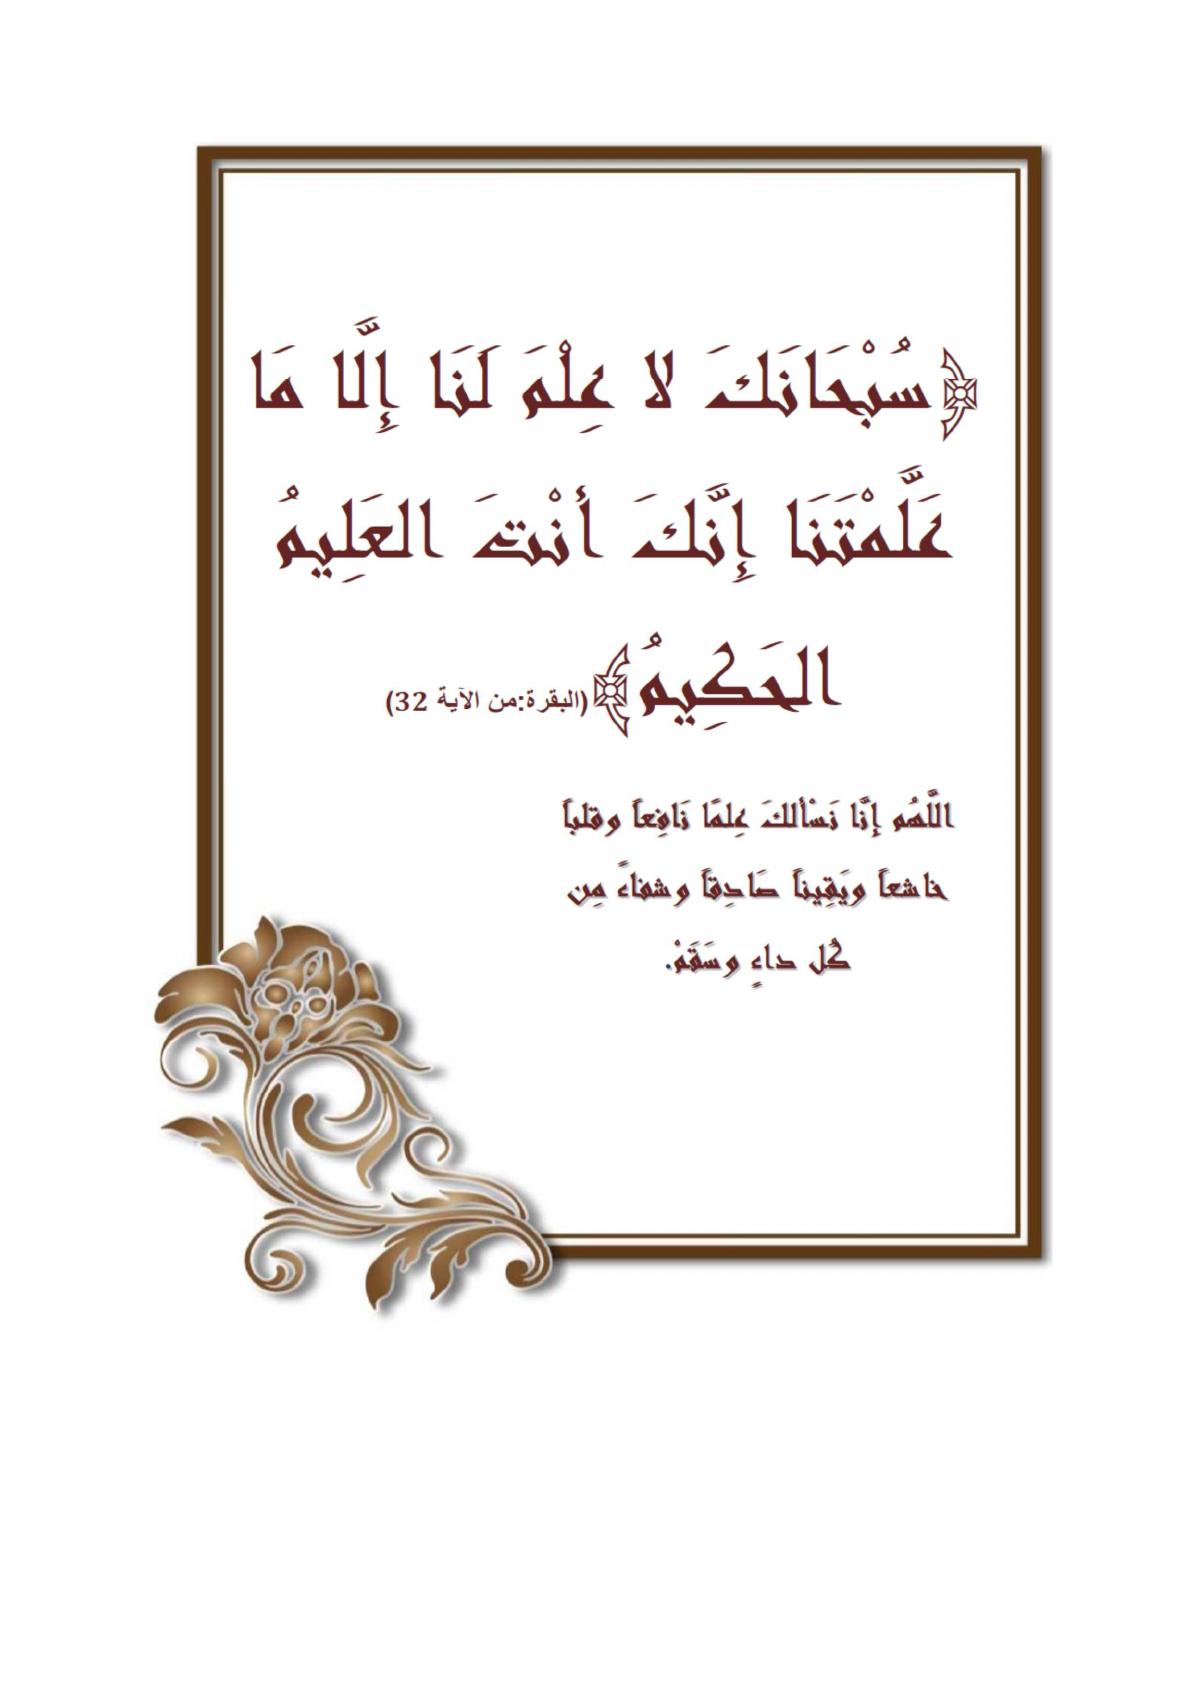 ﴿سُبْحَانَكَ لا عِلْمَ لَنَا إِلَّا مَا
عَلَّمْتَنَا إِنَّكَ أَنْتَ العَلِيمُ
الحَكِيمُ﴾(البقرة:من الآية 32)
اللَّهُم إِنَّا نَسْألكَ عِلمًا نَافِعاً وقلباً
خاشعاً ويَقِيناً صَادِقاً وشفاءً مِن
كُل داءٍ وسَقَمْ.